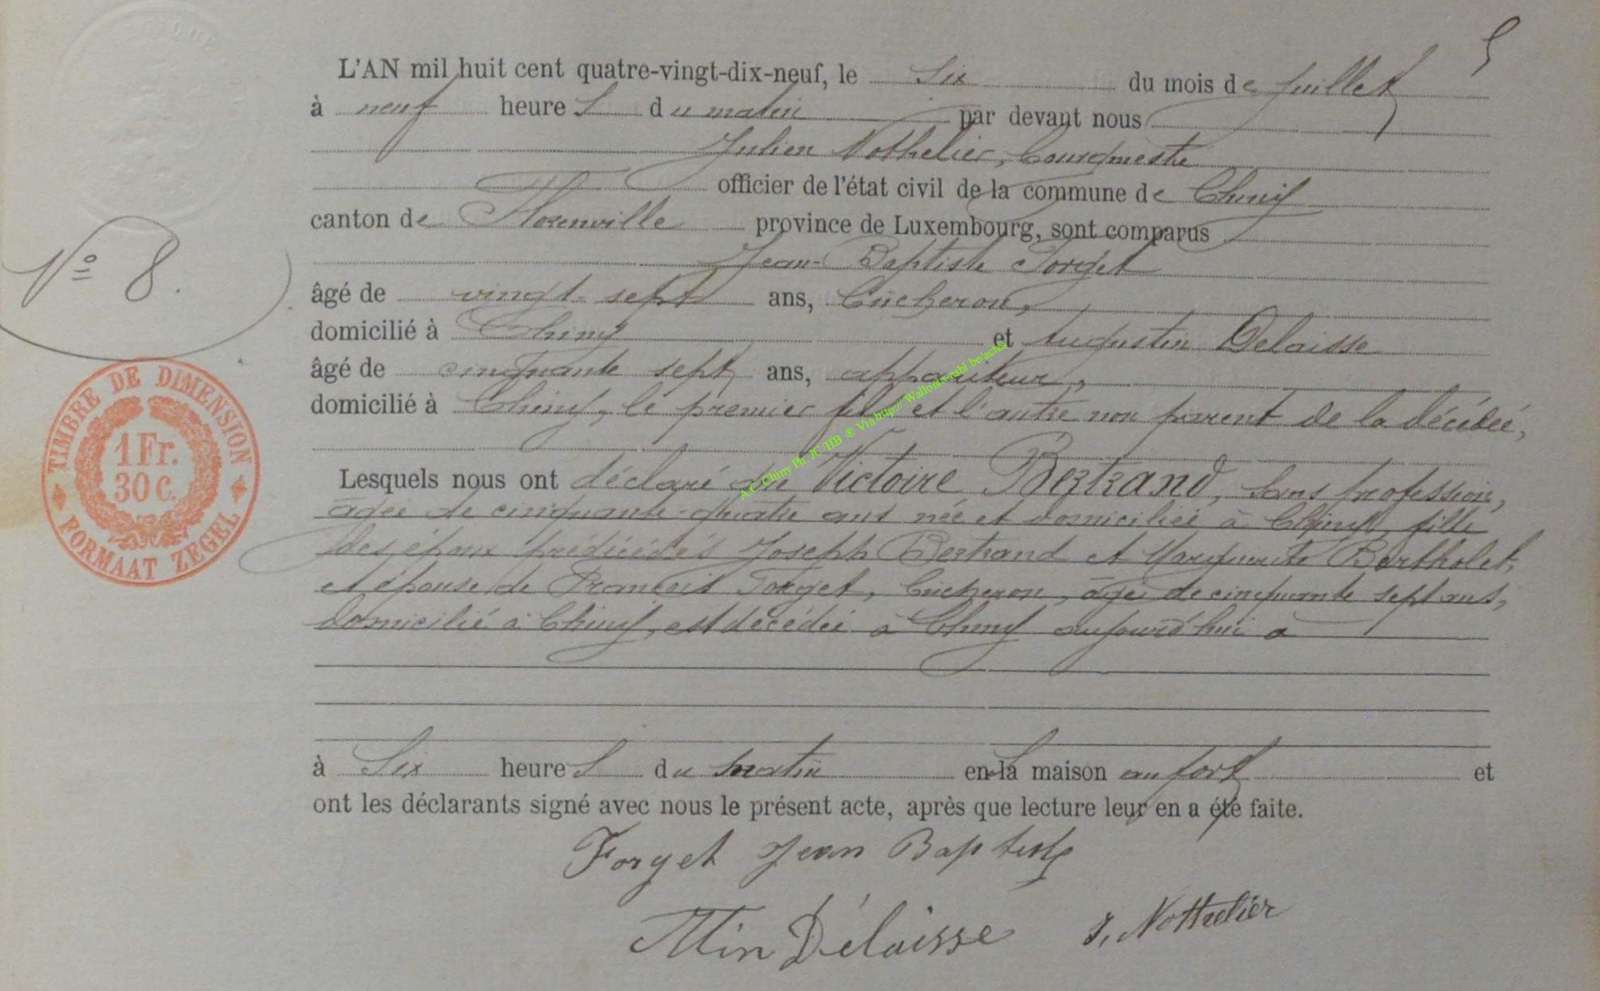 5
L'AN mil huit cent quatre-vingt-dix-neuf, le Six du mois de Juillet
à neuf heures du matin par devant nous
Julien Nothelier, Bourgmestre
officier de l'état civil de la commune de Chiny
canton de Florenville province de Luxembourg, sont comparus
Jean-Baptiste Forget
âgé de vingt-sept ans, bûcheron,
domicilié à Chiny et Augustin Delaisse
âgé de cinquante sept ans, appariteur,
domicilié à Chiny, le premier fils et l'autre non parent de la décédée,
Lesquels nous ont déclaré que Victoire Bertrand, sans profession,
âgée de cinquante-quatre ans née et domiciliée à Chiny, fille
des époux prédécédés Joseph Bertrand et Marguerite Bertholet,
et épouse de François Forget, bûcheron, âgé de cinquante sept ans,
domicilié à Chiny, est décédée à Chiny aujourd'hui à
à Six heures du matin en la maison au fort et
ont les déclarants signé avec nous le présent acte, après que lecture leur en a été faite.
Forget Jean Baptiste
Délaisse J. Nothelier
No 8.
TIMBRE DE DIMENSION
1 Fr.
30 C.
FORMAAT ZEGEL